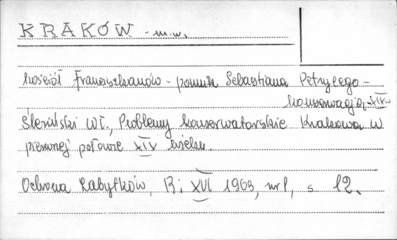 KRAKÓW - m.w.
Kościół Franciszkanów - pomnik Sebastiana Petrycego -
konserwacja, XIX w
Ślesiński Wł., Problemy konserwatorskie Krakowa w
pierwszej połowie XIX wieku.
Ochrona Zabytków, R: XVI 1963, nr 1, s. 12.